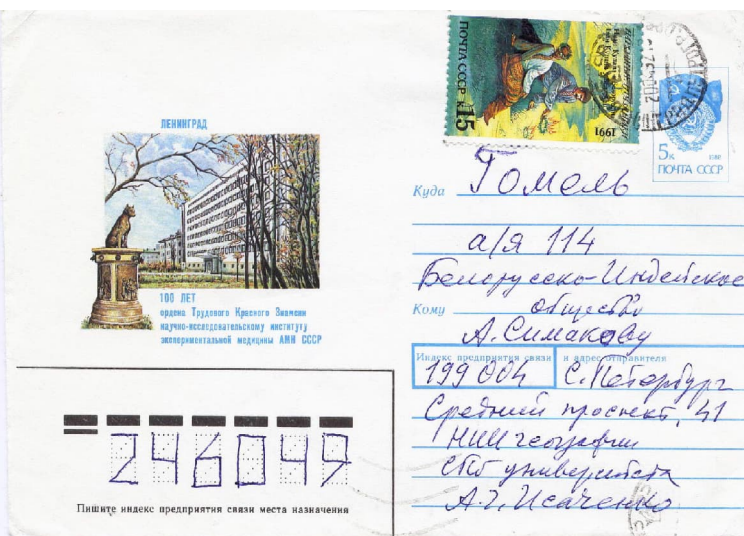 ЛЕНИНГРАД
100 ЛЕТ
ордена Трудового Красного Знамени
научно-исследовательскому институту
экспериментальной медицины АМН СССР
ПОЧТА СССР К 15
1991
5к 1988
ПОЧТА СССР
Куда Гомель
а/я 114
Белорусско-Индейское
Кому общество
А. Симакову
Индекс предприятия связи и адрес отправителя
199004 С. Петербург
Средний проспект, 41
НИИ географии
СПб университета
А.Г. Исаченко
246049
Пишите индекс предприятия связи места назначения